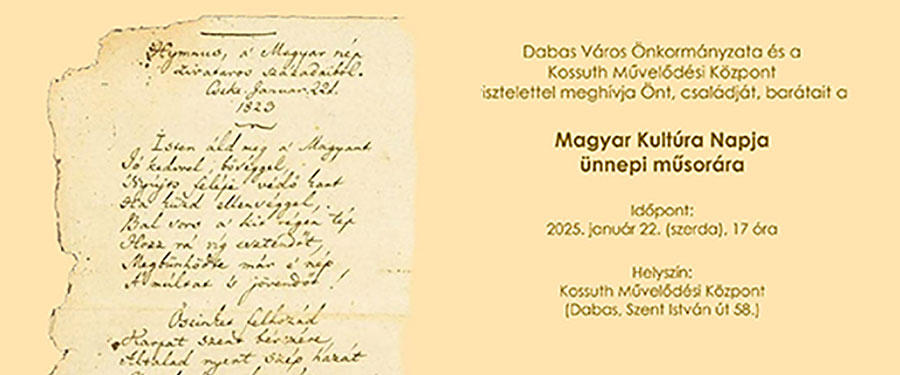 Hymnus, a' Magyar nép
zivataros századaiból.
Cseke Januar. 22d.
1823
Isten áld meg a' Magyart
Jó kedvvel, bőséggel,
Nyújts feléje védő kart
Ha küzd ellenséggel,
Bal sors a' kit régen tép
Hozz rá víg esztendőt,
Megbűnhődte már e' nép
A' múltat 's jövendőt!
Őseinket felhozád
Kárpát szent bérczére,
Általad nyert szép hazát
Dabas Város Önkormányzata és a
Kossuth Művelődési Központ
isztelettel meghívja Önt, családját, barátait a
Magyar Kultúra Napja
ünnepi műsorára
Időpont:
2025. január 22. (szerda), 17 óra
Helyszín:
Kossuth Művelődési Központ
(Dabas, Szent István út 58.)